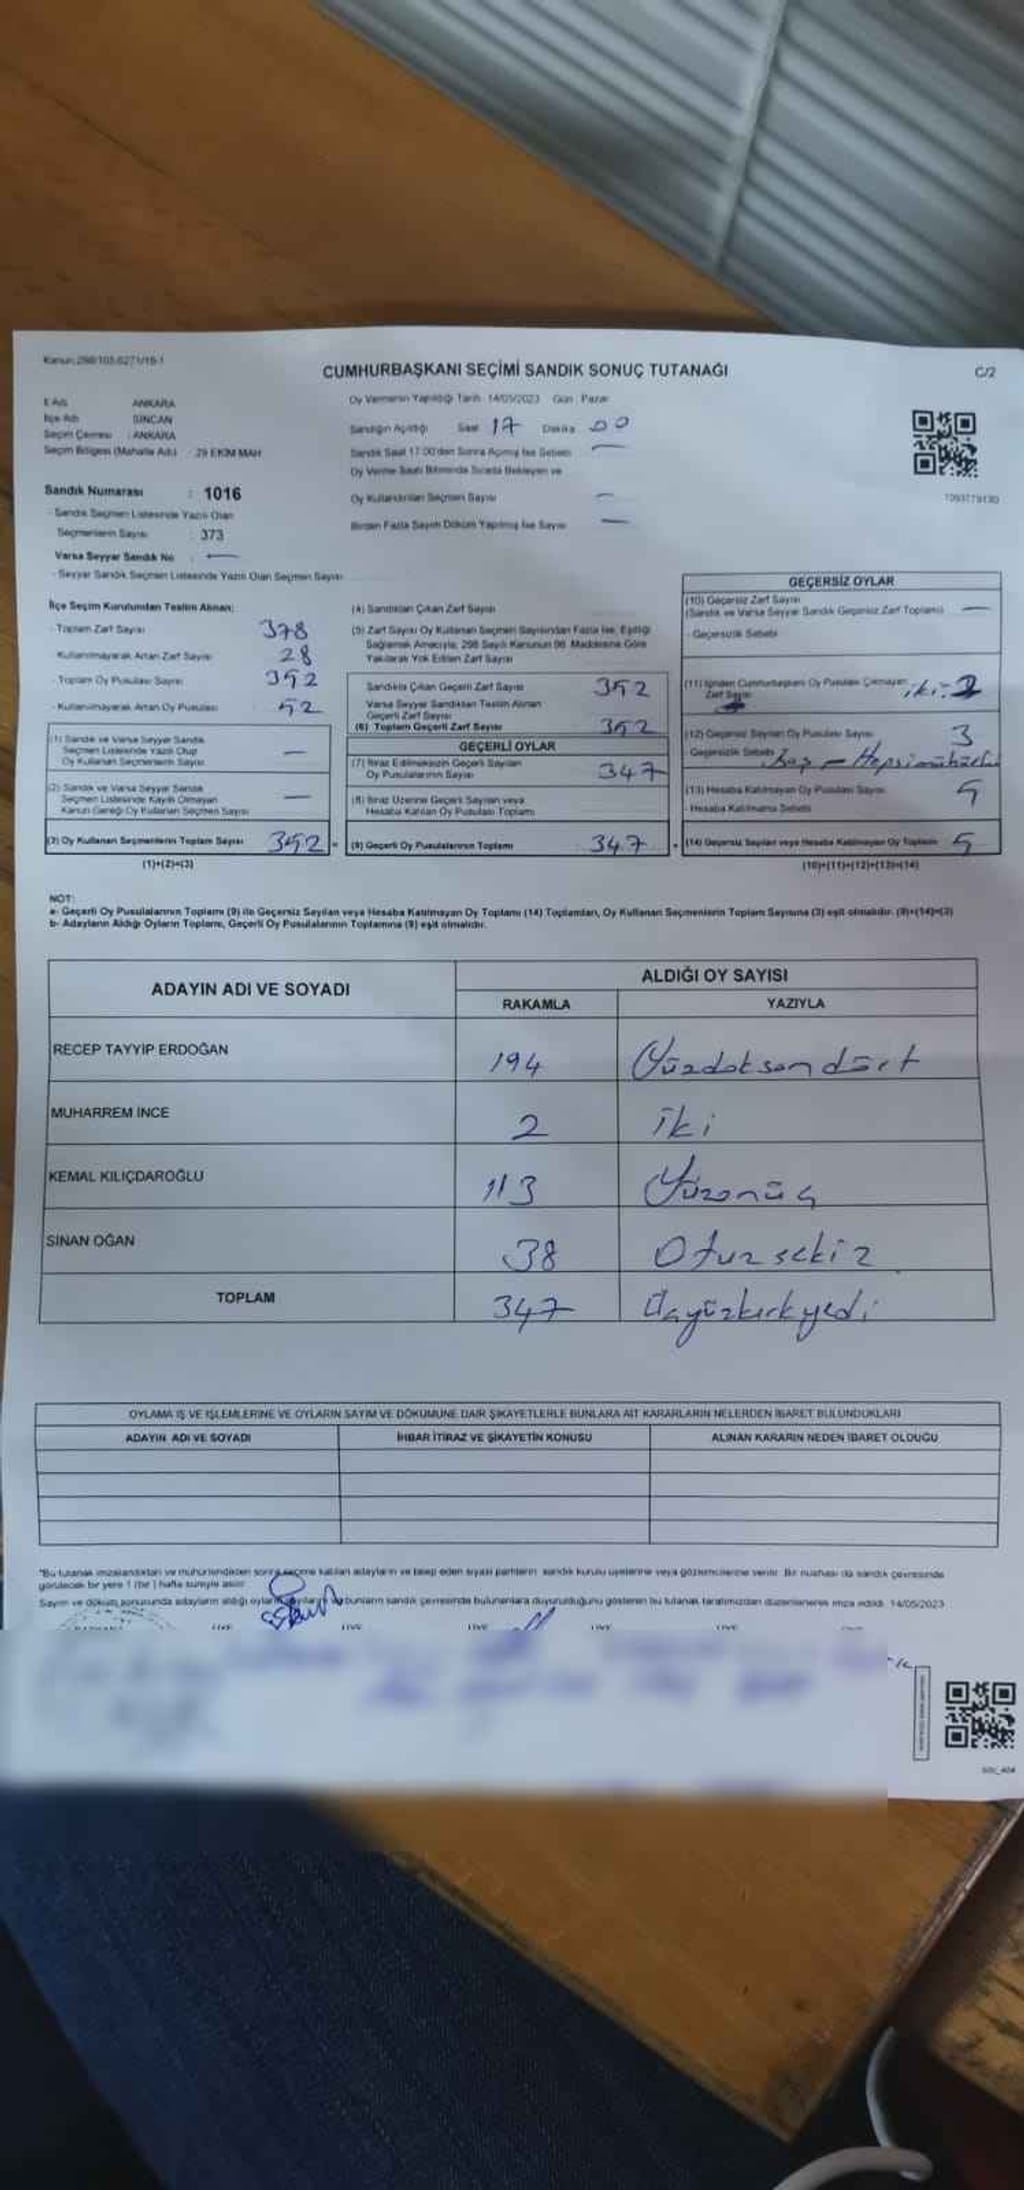 Kanun:298/105.6271/16-1
CUMHURBAŞKANI SEÇİMİ SANDIK SONUÇ TUTANAĞI
C/2
İl Adı ANKARA
İlçe Adı SİNCAN
Seçim Çevresi : ANKARA
Seçim Bölgesi (Mahalle Adı) : 29 EKİM MAH
Sandık Numarası : 1016
Sandık Seçmen Listesinde Yazılı Olan
Seçmenlerin Sayısı : 373
Varsa Seyyar Sandık No : —
Seyyar Sandık Seçmen Listesinde Yazılı Olan Seçmen Sayısı
Oy Vermenin Yapıldığı Tarih : 14/05/2023 Gün : Pazar
Sandığın Açıldığı Saat 17 Dakika 00
Sandık Saat 17.00'den Sonra Açılmış İse Sebebi —
Oy Verme Saati Bitiminde Sırada Bekleyen ve
Oy Kullandırılan Seçmen Sayısı —
Birden Fazla Sayım Döküm Yapılmış İse Sayısı —
İlçe Seçim Kurulundan Teslim Alınan:
- Toplam Zarf Sayısı 378
- Kullanılmayarak Artan Zarf Sayısı 28
- Toplam Oy Pusulası Sayısı 392
- Kullanılmayarak Artan Oy Pusulası 52
(1) Sandık ve Varsa Seyyar Sandık
Seçmen Listesinde Yazılı Olup
Oy Kullanan Seçmenlerin Sayısı —
(2) Sandık ve Varsa Seyyar Sandık
Seçmen Listesinde Kayıtlı Olmayan
Kanun Gereği Oy Kullanan Seçmen Sayısı —
(3) Oy Kullanan Seçmenlerin Toplam Sayısı 352
(1)+(2)=(3)
(4) Sandıktan Çıkan Zarf Sayısı
(5) Zarf Sayısı Oy Kullanan Seçmen Sayısından Fazla İse, Eşitliği
Sağlamak Amacıyla; 298 Sayılı Kanunun 98. Maddesine Göre
Yakılarak Yok Edilen Zarf Sayısı
Sandıkta Çıkan Geçerli Zarf Sayısı 352
Varsa Seyyar Sandıktan Teslim Alınan
Geçerli Zarf Sayısı
(6) Toplam Geçerli Zarf Sayısı 352
GEÇERLİ OYLAR
(7) İtiraz Edilmeksizin Geçerli Sayılan
Oy Pusulalarının Sayısı 347
(8) İtiraz Üzerine Geçerli Sayılan veya
Hesaba Katılan Oy Pusulası Toplamı
(9) Geçerli Oy Pusulalarının Toplamı 347
GEÇERSİZ OYLAR
(10) Geçersiz Zarf Sayısı
(Sandık ve Varsa Seyyar Sandık Geçersiz Zarf Toplamı) —
- Geçersizlik Sebebi
(11) İçinden Cumhurbaşkanı Oy Pusulası Çıkmayan
Zarf Sayısı iki: 2
(12) Geçersiz Sayılan Oy Pusulası Sayısı 3
Geçersizlik Sebebi Boş - Hepsi mühürlü
(13) Hesaba Katılmayan Oy Pusulası Sayısı 5
- Hesaba Katılmama Sebebi
(14) Geçersiz Sayılan veya Hesaba Katılmayan Oy Toplamı 5
(10)+(11)+(12)+(13)=(14)
NOT:
a- Geçerli Oy Pusulalarının Toplamı (9) ile Geçersiz Sayılan veya Hesaba Katılmayan Oy Toplamı (14) Toplamları, Oy Kullanan Seçmenlerin Toplam Sayısına (3) eşit olmalıdır. (9)+(14)=(3)
b- Adayların Aldığı Oyların Toplamı, Geçerli Oy Pusulalarının Toplamına (9) eşit olmalıdır.
ADAYIN ADI VE SOYADI
ALDIĞI OY SAYISI
RAKAMLA YAZIYLA
RECEP TAYYİP ERDOĞAN 194 Yüzdoksandört
MUHARREM İNCE 2 iki
KEMAL KILIÇDAROĞLU 113 Yüzonüç
SİNAN OĞAN 38 Otuzsekiz
TOPLAM 347 Üçyüzkırkyedi
OYLAMA İŞ VE İŞLEMLERİNE VE OYLARIN SAYIM VE DÖKÜMÜNE DAİR ŞİKAYETLERLE BUNLARA AİT KARARLARIN NELERDEN İBARET BULUNDUKLARI
ADAYIN ADI VE SOYADI İHBAR İTİRAZ VE ŞİKAYETİN KONUSU ALINAN KARARIN NEDEN İBARET OLDUĞU
"Bu tutanak imzalandıktan ve mühürlendikten sonra seçime katılan adayların ve talep eden siyasi partilerin sandık kurulu üyelerine veya gözlemcilerine verilir. Bir nüshası da sandık çevresinde
görülecek bir yere 1 (bir) hafta süreyle asılır.
Sayım ve döküm sonucunda adayların aldığı oyların bunların sandık çevresinde bulunanlara duyurulduğunu gösteren bu tutanak tarafımızdan düzenlenerek imza edildi. 14/05/2023
ÜYE ÜYE ÜYE ÜYE ÜYE